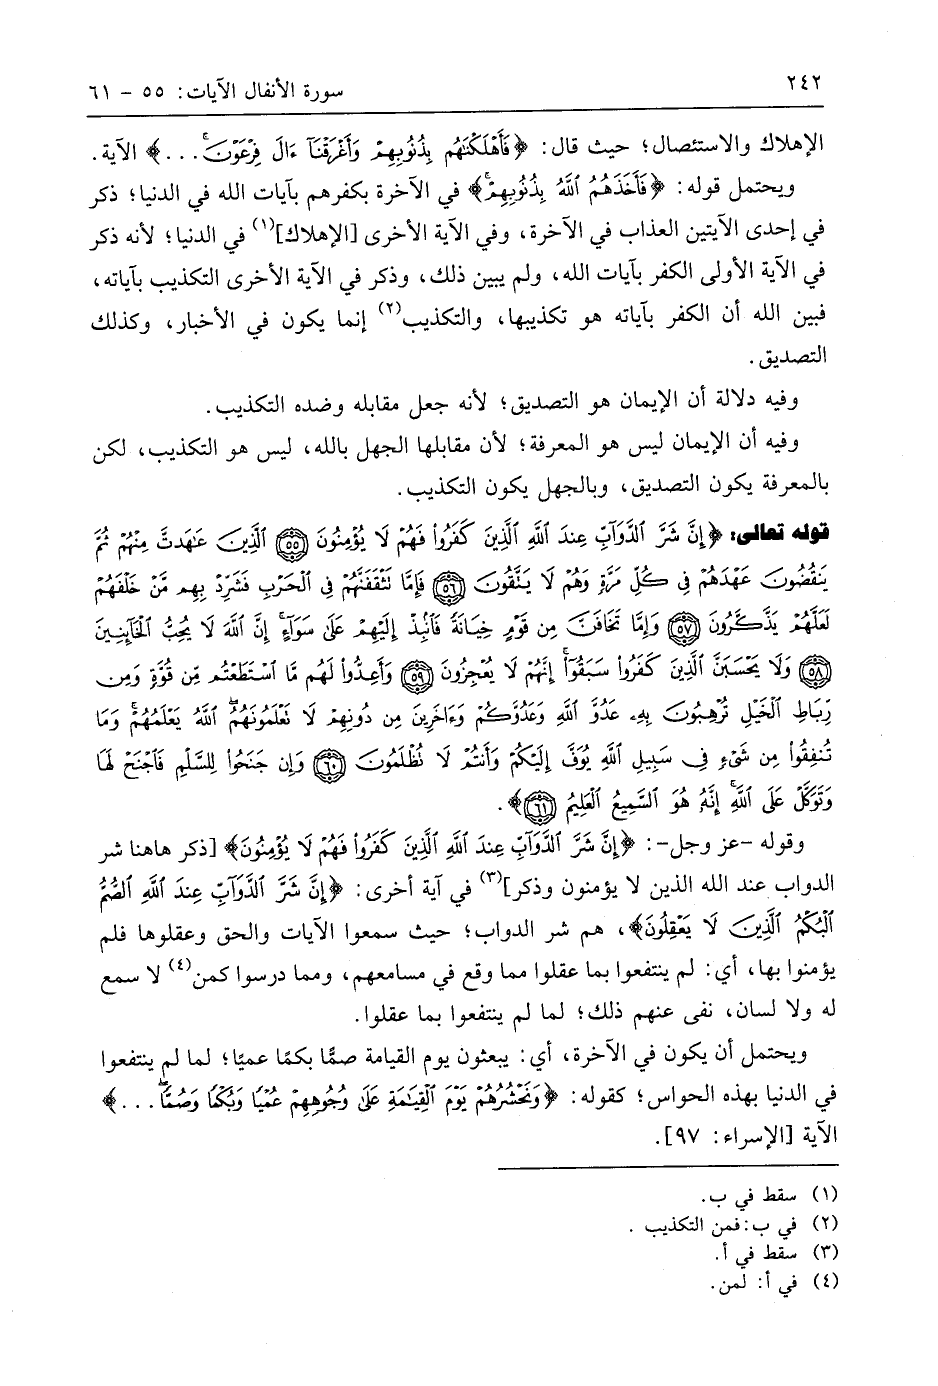 ٢٤٢
سورة الأنفال الآيات: ٥٥ - ٦١
الإهلاك والاستئصال؛ حيث قال: ﴿فَأَهْلَكْنَٰهُم بِذُنُوبِهِمْ وَأَغْرَقْنَآ ءَالَ فِرْعَوْنَۚ...﴾ الآية.
ويحتمل قوله: ﴿فَأَخَذَهُمُ ٱللَّهُ بِذُنُوبِهِمْۚ﴾ في الآخرة بكفرهم بآيات الله في الدنيا؛ ذكر
في إحدى الآيتين العذاب في الآخرة، وفي الآية الأخرى [الإهلاك](١) في الدنيا؛ لأنه ذكر
في الآية الأولى الكفر بآيات الله، ولم يبين ذلك، وذكر في الآية الأخرى التكذيب بآياته،
فبين الله أن الكفر بآياته هو تكذيبها، والتكذيب(٢) إنما يكون في الأخبار، وكذلك
التصديق.
وفيه دلالة أن الإيمان هو التصديق؛ لأنه جعل مقابله وضده التكذيب.
وفيه أن الإيمان ليس هو المعرفة؛ لأن مقابلها الجهل بالله، ليس هو التكذيب، لكن
بالمعرفة يكون التصديق، وبالجهل يكون التكذيب.
قوله تعالى: ﴿إِنَّ شَرَّ ٱلدَّوَآبِّ عِندَ ٱللَّهِ ٱلَّذِينَ كَفَرُوا۟ فَهُمْ لَا يُؤْمِنُونَ ٥٥ ٱلَّذِينَ عَٰهَدتَّ مِنْهُمْ ثُمَّ
يَنقُضُونَ عَهْدَهُمْ فِى كُلِّ مَرَّةٍ وَهُمْ لَا يَتَّقُونَ ٥٦ فَإِمَّا تَثْقَفَنَّهُمْ فِى ٱلْحَرْبِ فَشَرِّدْ بِهِم مَّنْ خَلْفَهُمْ
لَعَلَّهُمْ يَذَّكَّرُونَ ٥٧ وَإِمَّا تَخَافَنَّ مِن قَوْمٍ خِيَانَةً فَٱنۢبِذْ إِلَيْهِمْ عَلَىٰ سَوَآءٍۚ إِنَّ ٱللَّهَ لَا يُحِبُّ ٱلْخَآئِنِينَ
٥٨ وَلَا يَحْسَبَنَّ ٱلَّذِينَ كَفَرُوا۟ سَبَقُوٓا۟ۚ إِنَّهُمْ لَا يُعْجِزُونَ ٥٩ وَأَعِدُّوا۟ لَهُم مَّا ٱسْتَطَعْتُم مِّن قُوَّةٍ وَمِن
رِّبَاطِ ٱلْخَيْلِ تُرْهِبُونَ بِهِۦ عَدُوَّ ٱللَّهِ وَعَدُوَّكُمْ وَءَاخَرِينَ مِن دُونِهِمْ لَا تَعْلَمُونَهُمُۖ ٱللَّهُ يَعْلَمُهُمْۚ وَمَا
تُنفِقُوا۟ مِن شَىْءٍ فِى سَبِيلِ ٱللَّهِ يُوَفَّ إِلَيْكُمْ وَأَنتُمْ لَا تُظْلَمُونَ ٦٠ وَإِن جَنَحُوا۟ لِلسَّلْمِ فَٱجْنَحْ لَهَا
وَتَوَكَّلْ عَلَى ٱللَّهِۚ إِنَّهُۥ هُوَ ٱلسَّمِيعُ ٱلْعَلِيمُ ٦١﴾.
وقوله -عز وجل-: ﴿إِنَّ شَرَّ ٱلدَّوَآبِّ عِندَ ٱللَّهِ ٱلَّذِينَ كَفَرُوا۟ فَهُمْ لَا يُؤْمِنُونَ﴾ [ذكر هاهنا شر
الدواب عند الله الذين لا يؤمنون وذكر](٣) في آية أخرى: ﴿إِنَّ شَرَّ ٱلدَّوَآبِّ عِندَ ٱللَّهِ ٱلصُّمُّ
ٱلْبُكْمُ ٱلَّذِينَ لَا يَعْقِلُونَ﴾، هم شر الدواب؛ حيث سمعوا الآيات والحق وعقلوها فلم
يؤمنوا بها، أي: لم ينتفعوا بما عقلوا مما وقع في مسامعهم، ومما درسوا كمن(٤) لا سمع
له ولا لسان، نفى عنهم ذلك؛ لما لم ينتفعوا بما عقلوا.
ويحتمل أن يكون في الآخرة، أي: يبعثون يوم القيامة صمًّا بكمًا عميًا؛ لما لم ينتفعوا
في الدنيا بهذه الحواس؛ كقوله: ﴿وَنَحْشُرُهُمْ يَوْمَ ٱلْقِيَٰمَةِ عَلَىٰ وُجُوهِهِمْ عُمْيًا وَبُكْمًا وَصُمًّاۖ...﴾
الآية [الإسراء: ٩٧].
(١) سقط في ب.
(٢) في ب: فمن التكذيب .
(٣) سقط في أ.
(٤) في أ: لمن.